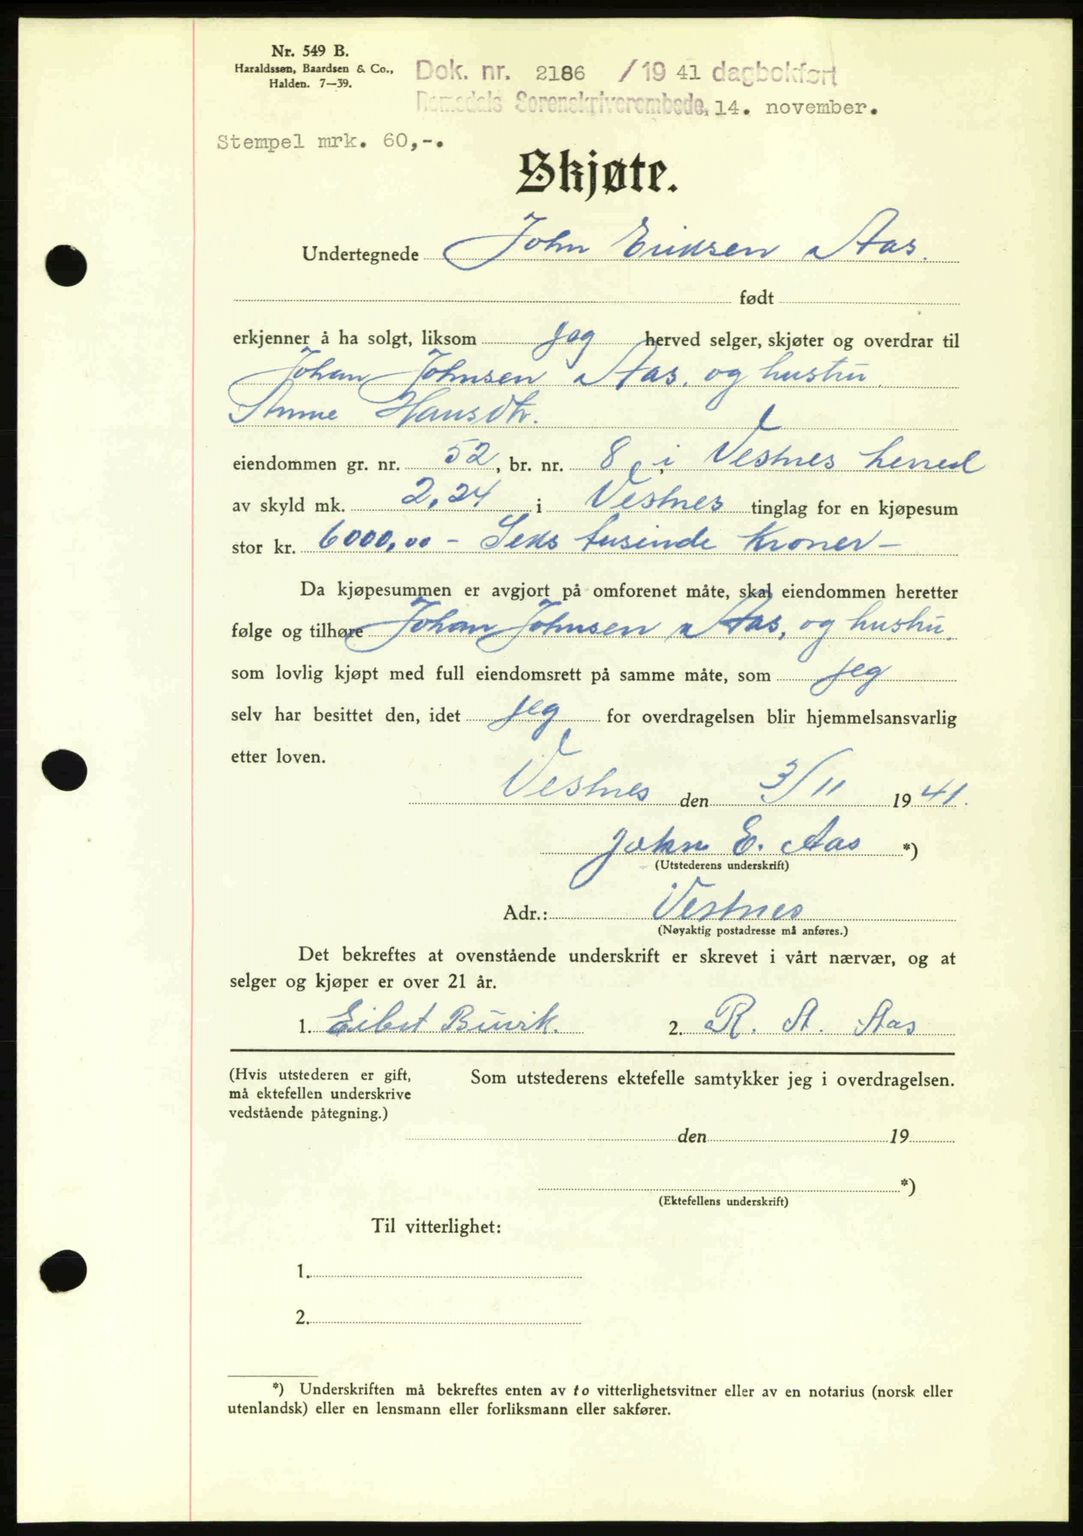 Nr. 549 B.
Haraldssøn, Baardsen & Co.,
Halden. 7—39.
Dok. nr. 2186 / 19 41 dagbokført
Romsdals Sorenskriverembede, 14. november.
Stempel mrk. 60,-.
Skjøte.
Undertegnede John Eriksen Aas.
født
erkjenner å ha solgt, liksom jeg herved selger, skjøter og overdrar til
Johan Johnsen Aas, og hustru
Anne Hansdtr.
eiendommen gr. nr. 52, br. nr. 8, i Vestnes herred
av skyld mk. 2,24 i Vestnes tinglag for en kjøpesum
stor kr. 6000,00 – Seks tusende Kroner –
Da kjøpesummen er avgjort på omforenet måte, skal eiendommen heretter
følge og tilhøre Johan Johnsen Aas, og hustru,
som lovlig kjøpt med full eiendomsrett på samme måte, som jeg
selv har besittet den, idet jeg for overdragelsen blir hjemmelsansvarlig
etter loven.
Vestnes den 3/11 19 41.
John E. Aas *)
(Utstederens underskrift)
Adr.: Vestnes
(Nøyaktig postadresse må anføres.)
Det bekreftes at ovenstående underskrift er skrevet i vårt nærvær, og at
selger og kjøper er over 21 år.
1. Buvik. 2. R. A. Aas
(Hvis utstederen er gift, Som utstederens ektefelle samtykker jeg i overdragelsen.
må ektefellen underskrive
vedstående påtegning.)
den 19
*)
(Ektefellens underskrift)
Til vitterlighet:
1.
2.
*) Underskriften må bekreftes enten av to vitterlighetsvitner eller av en notarius (norsk eller
utenlandsk) eller en lensmann eller forliksmann eller sakfører.